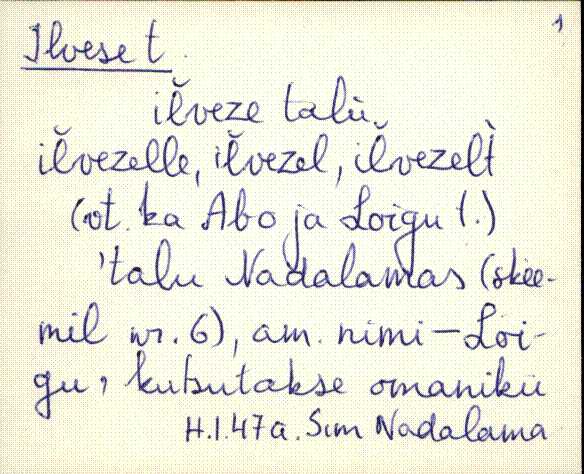 1
Ilvese t.
iľveze talù.
iľvezelle, iľvezel, iľvezelt̀
(vt. ka Abo ja Loigu t.)
'talu Nadalamas (skee-
mil nr. 6), am. nimi – Loi-
gu, kutsutakse omaniku
H.I. 47a. Sim Nadalama